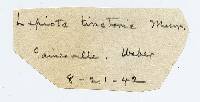 Lepiota tinctoria Murr.
Gainesville. Weber
8-21-42